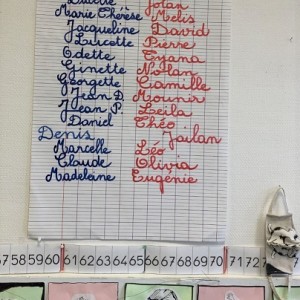 Lucette Jolan
Marie Thérèse Melis
Jacqueline David
Lucette Pierre
Odette Tyana
Ginette Nolan
Georgette Camille
Jean D. Mounir
Jean P. Leila
Daniel Théo
Denis Jailan
Marcelle Léo
Claude Olivia
Madelaine Eugénie
57 58 59 60 61 62 63 64 65 66 67 68 69 70 71 72